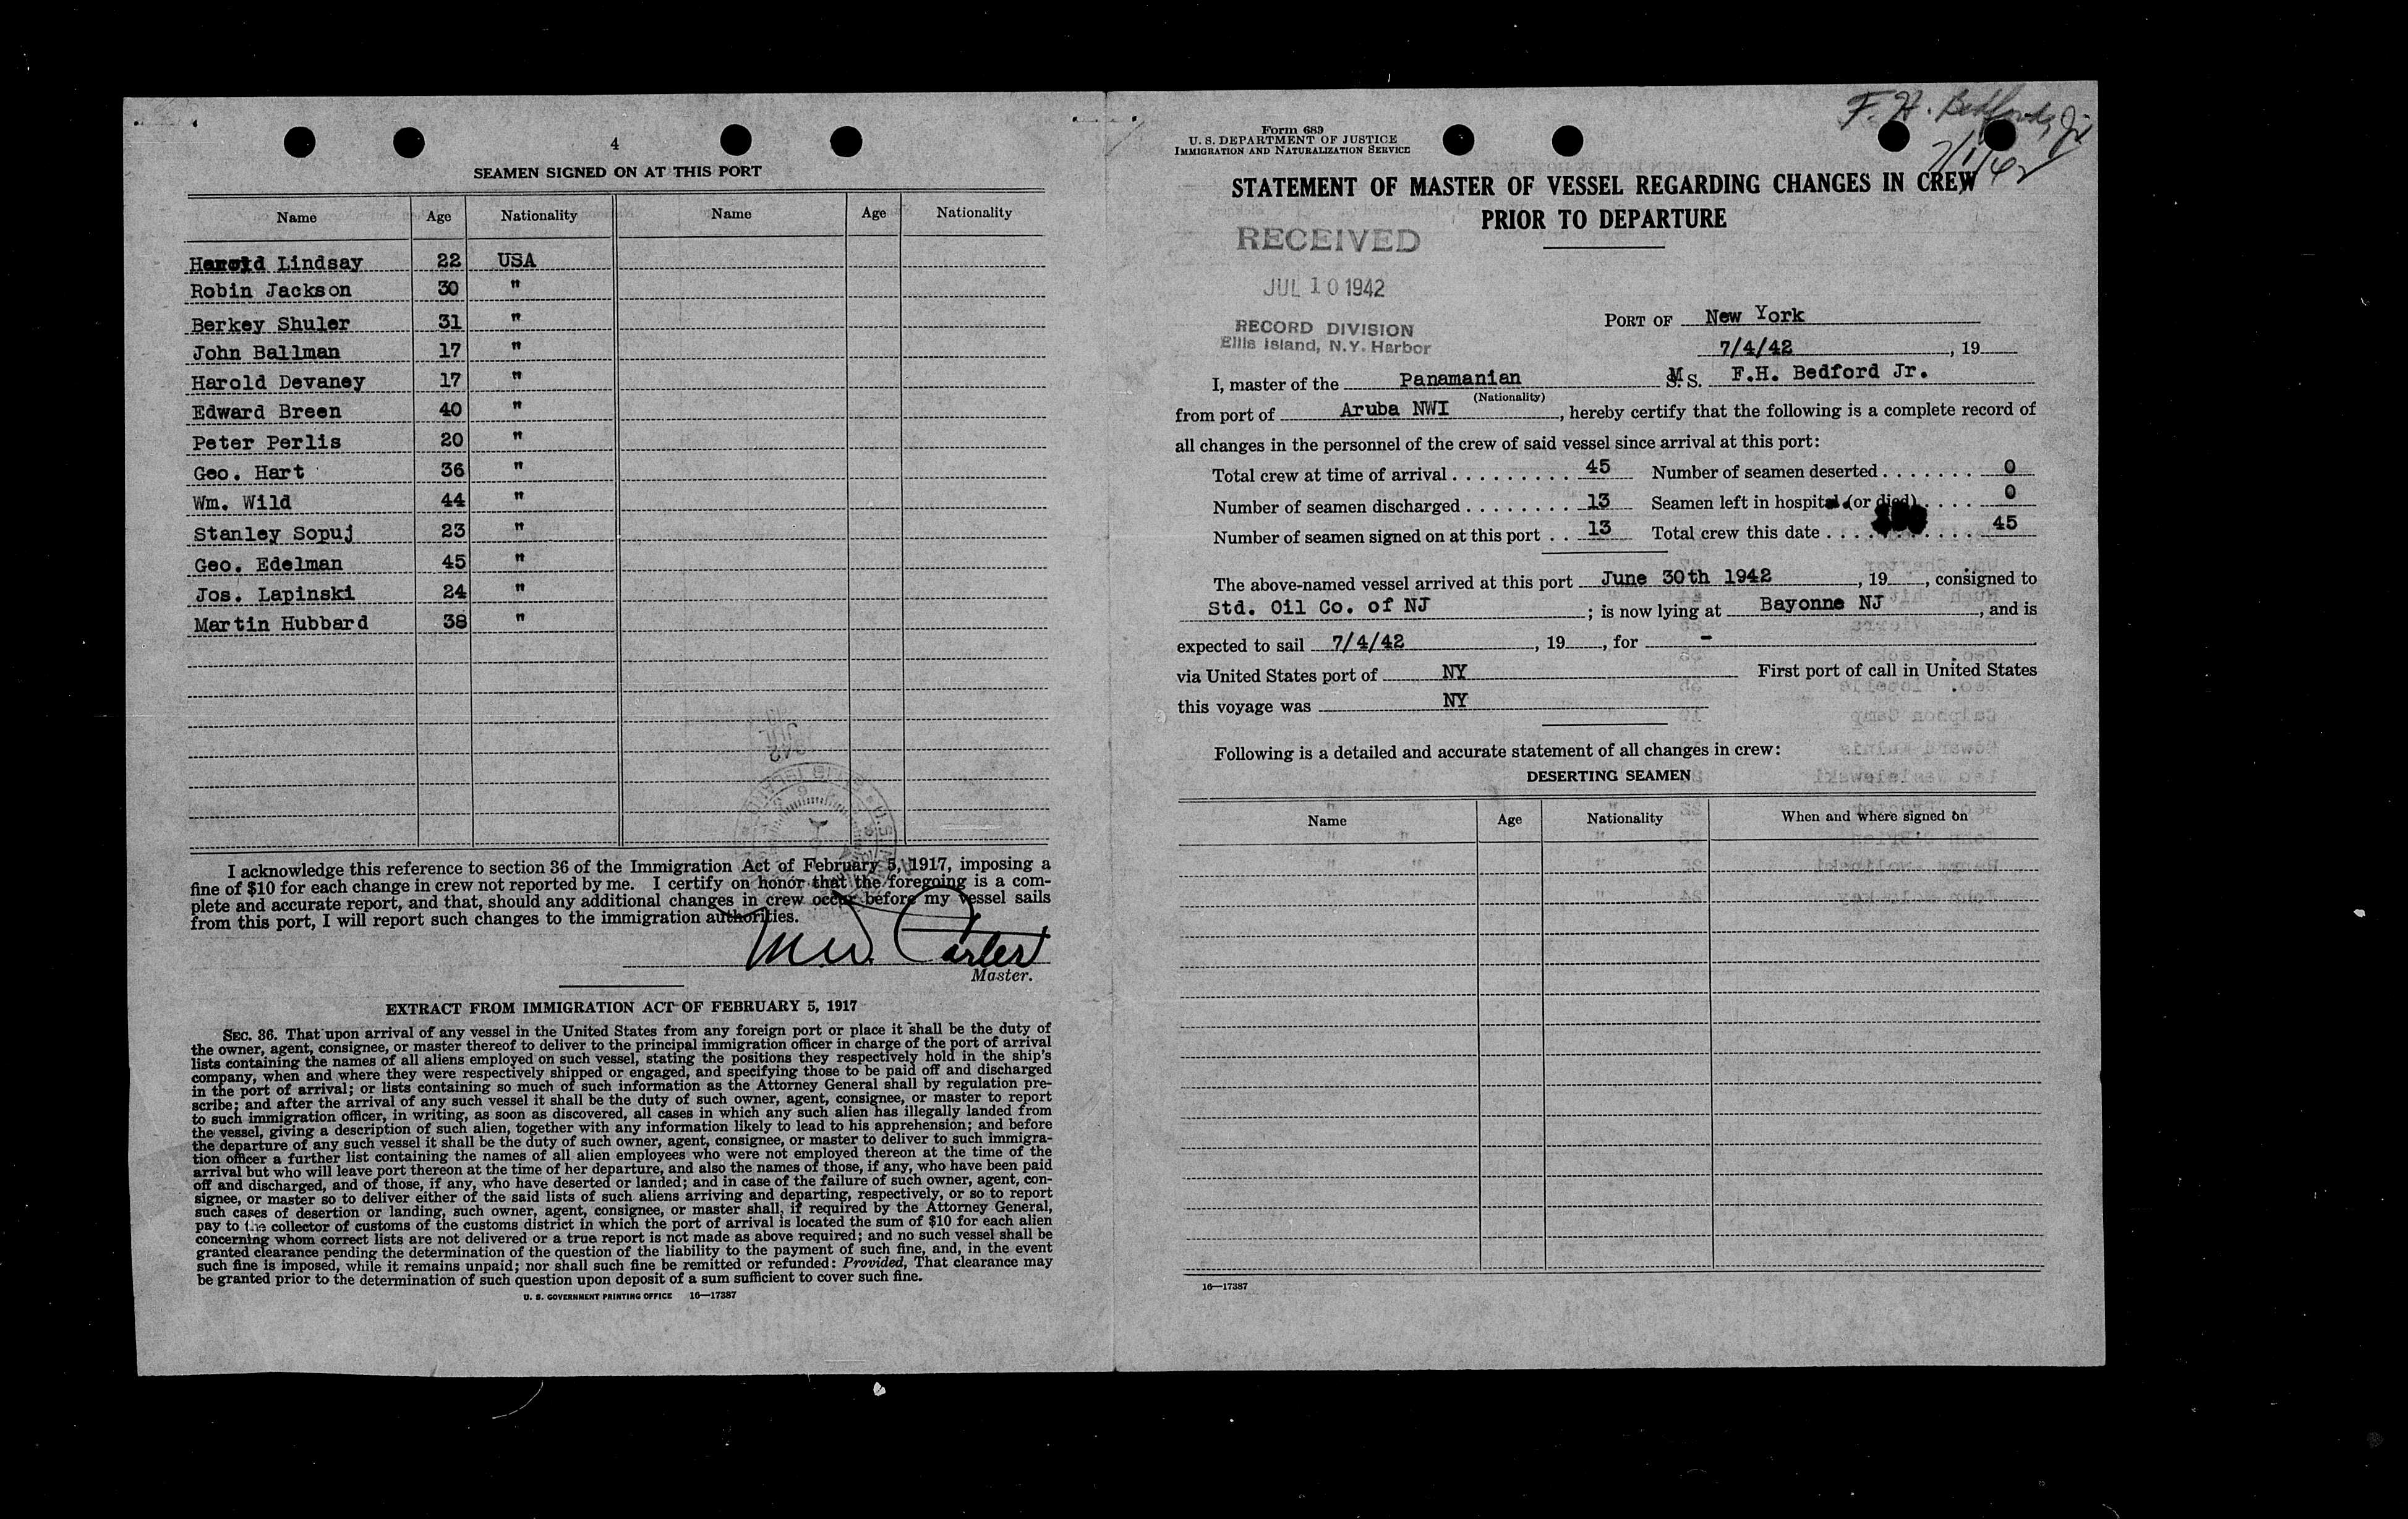 4
SEAMEN SIGNED ON AT THIS PORT
Name Age Nationality Name Age Nationality
Harold Lindsay 22 USA
Robin Jackson 30 "
Berkey Shuler 31 "
John Ballman 17 "
Harold Devaney 17 "
Edward Breen 40 "
Peter Perlis 20 "
Geo. Hart 36 "
Wm. Wild 44 "
Stanley Sopuj 23 "
Geo. Edelman 45 "
Jos. Lapinski 24 "
Martin Hubbard 38 "
I acknowledge this reference to section 36 of the Immigration Act of February 5, 1917, imposing a
fine of $10 for each change in crew not reported by me. I certify on honor that the foregoing is a com-
plete and accurate report, and that, should any additional changes in crew occur before my vessel sails
from this port, I will report such changes to the immigration authorities.
M.W. Carter
Master.
EXTRACT FROM IMMIGRATION ACT OF FEBRUARY 5, 1917
SEC. 36. That upon arrival of any vessel in the United States from any foreign port or place it shall be the duty of
the owner, agent, consignee, or master thereof to deliver to the principal immigration officer in charge of the port of arrival
lists containing the names of all aliens employed on such vessel, stating the positions they respectively hold in the ship's
company, when and where they were respectively shipped or engaged, and specifying those to be paid off and discharged
in the port of arrival; or lists containing so much of such information as the Attorney General shall by regulation pre-
scribe; and after the arrival of any such vessel it shall be the duty of such owner, agent, consignee, or master to report
to such immigration officer, in writing, as soon as discovered, all cases in which any such alien has illegally landed from
the vessel, giving a description of such alien, together with any information likely to lead to his apprehension; and before
the departure of any such vessel it shall be the duty of such owner, agent, consignee, or master to deliver to such immigra-
tion officer a further list containing the names of all alien employees who were not employed thereon at the time of the
arrival but who will leave port thereon at the time of her departure, and also the names of those, if any, who have been paid
off and discharged, and of those, if any, who have deserted or landed; and in case of the failure of such owner, agent, con-
signee, or master so to deliver either of the said lists of such aliens arriving and departing, respectively, or so to report
such cases of desertion or landing, such owner, agent, consignee, or master shall, if required by the Attorney General,
pay to the collector of customs of the customs district in which the port of arrival is located the sum of $10 for each alien
concerning whom correct lists are not delivered or a true report is not made as above required; and no such vessel shall be
granted clearance pending the determination of the question of the liability to the payment of such fine, and, in the event
such fine is imposed, while it remains unpaid; nor shall such fine be remitted or refunded: Provided, That clearance may
be granted prior to the determination of such question upon deposit of a sum sufficient to cover such fine.
U. S. GOVERNMENT PRINTING OFFICE 16—17387
F. H. Bedford, Jr
7/1/42
Form 689
U. S. DEPARTMENT OF JUSTICE
IMMIGRATION AND NATURALIZATION SERVICE
STATEMENT OF MASTER OF VESSEL REGARDING CHANGES IN CREW
PRIOR TO DEPARTURE
RECEIVED
JUL 10 1942
RECORD DIVISION
Ellis Island, N.Y. Harbor
PORT OF New York
7/4/42, 19
I, master of the Panamanian M S. F.H. Bedford Jr.
(Nationality)
from port of Aruba NWI, hereby certify that the following is a complete record of
all changes in the personnel of the crew of said vessel since arrival at this port:
Total crew at time of arrival 45 Number of seamen deserted 0
Number of seamen discharged 13 Seamen left in hospital (or died) 0
Number of seamen signed on at this port 13 Total crew this date 45
The above-named vessel arrived at this port June 30th 1942, 19, consigned to
Std. Oil Co. of NJ; is now lying at Bayonne NJ, and is
expected to sail 7/4/42, 19, for -
via United States port of NY First port of call in United States
this voyage was NY
Following is a detailed and accurate statement of all changes in crew:
DESERTING SEAMEN
Name Age Nationality When and where signed on
16—17387